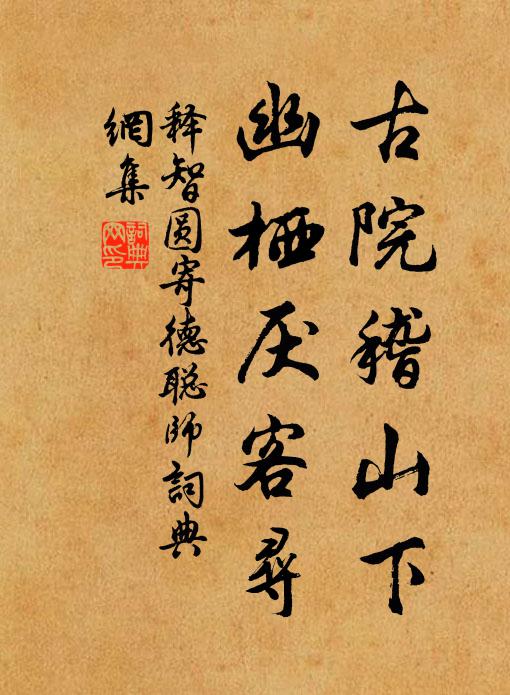 古院稽山下
幽栖厌客寻
释智圆寄德聪师词典
網集
詞典
网印